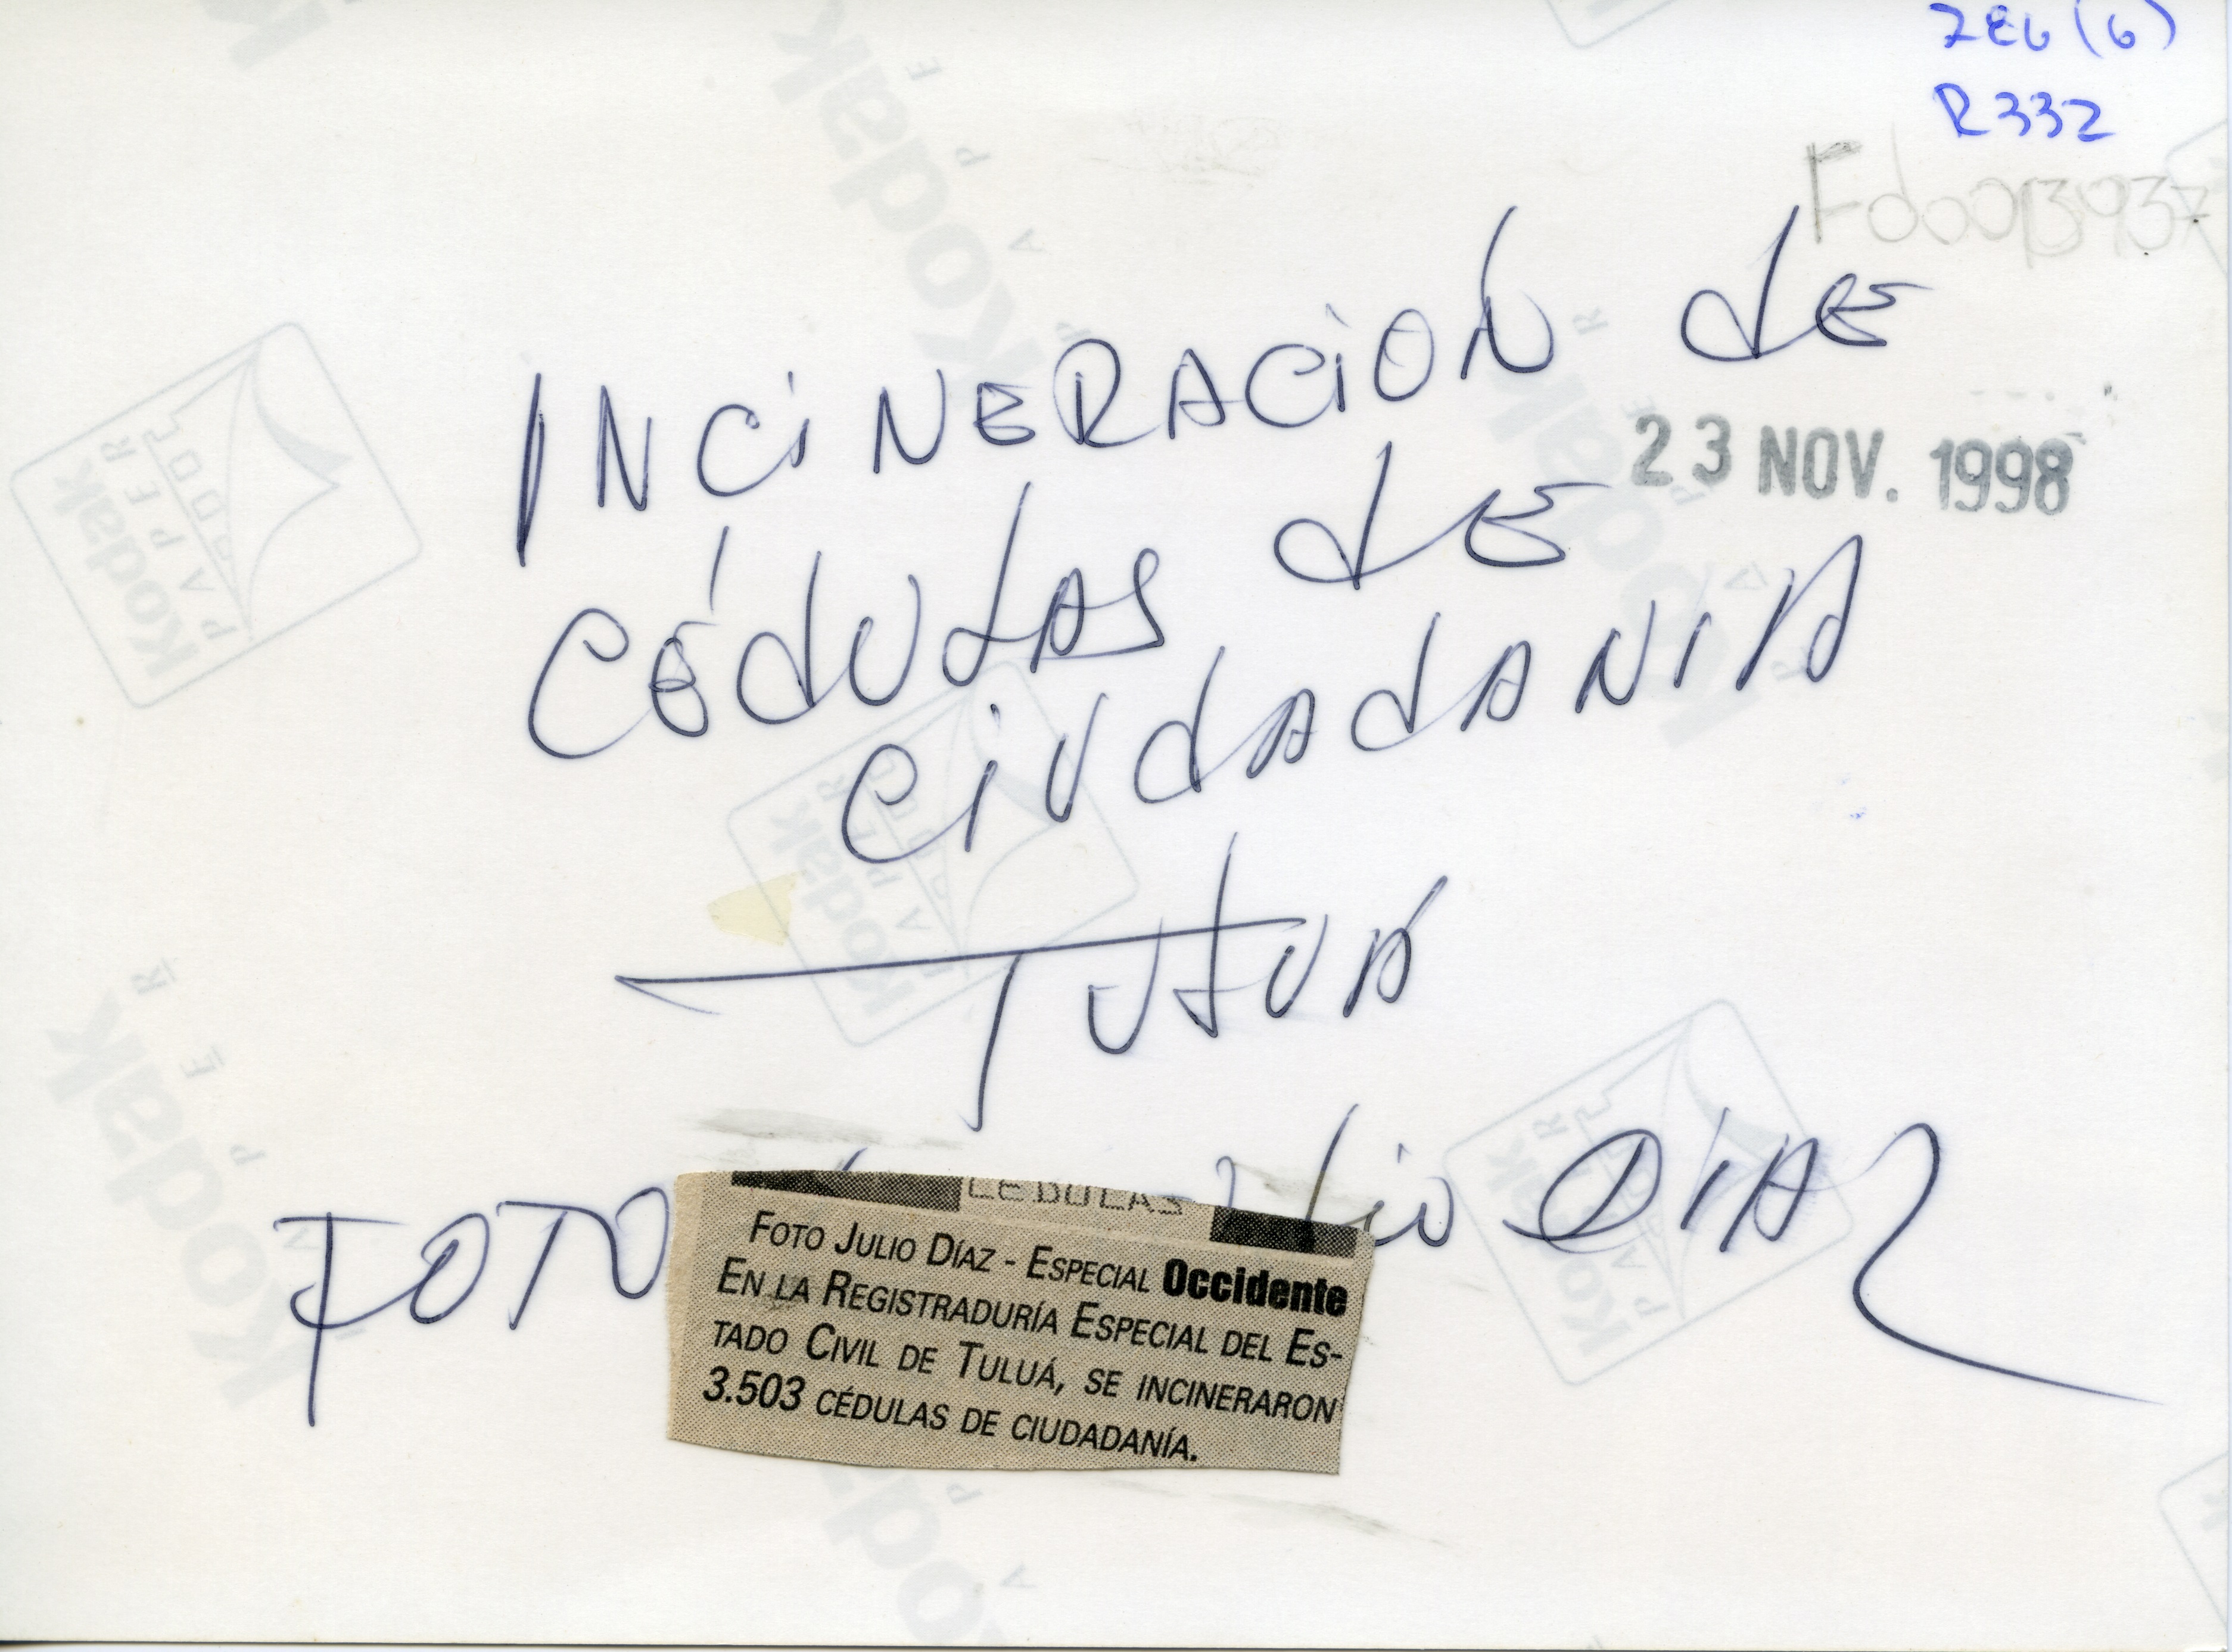 286 (6)
R332
Fdo0013937
INCINERACIÓN de
23 NOV. 1998
CÉDULAS de
CIUDADANIA
TULUÁ
FOTO Julio DIAZ
CEDULAS
FOTO JULIO DÍAZ - ESPECIAL Occidente
EN LA REGISTRADURÍA ESPECIAL DEL ES-
TADO CIVIL DE TULUÁ, SE INCINERARON
3.503 CÉDULAS DE CIUDADANÍA.
Kodak
PAPER